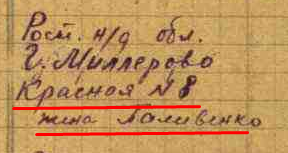 Рост. н/д обл.
г. Миллерово
Красная N 8
жена Паливенко